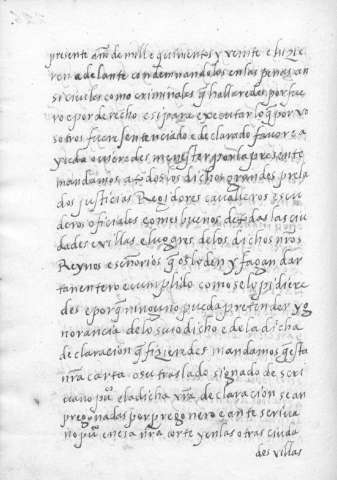 presente año de mille e quinientos y veinte e hizie
ren a delante condemnandolos en las penas an
si ceviles como criminales q̃ hallaredes por fue
ro e por derecho e si para executar lo q̃ por vo
sotros fuere sentenciado e declarado favor e a
yuda ovieredes menester por la presente
mandamos a todos los dichos grandes prela
dos justicias Regidores cavalleros escu
deros oficiales e omes buenos de todas las ciu
dades e villas e lugares de los dichos nr̃os
Reynos e señorios q̃ os lo den y fagan dar
tan entero e cumplido como se lo pidiere
des e porq̃ ninguno pueda pretender yg
norancia de lo susodicho e de la dicha
declaracion q̃ fizieredes mandamos q̃ esta
nr̃a carta o su traslado signado de scri
vano pu^co e la dicha vr̃a declaracion sean
pregonadas por pregonero e ante scriva
no pu^co en esa nr̃a corte y en las otras ciuda
des villas